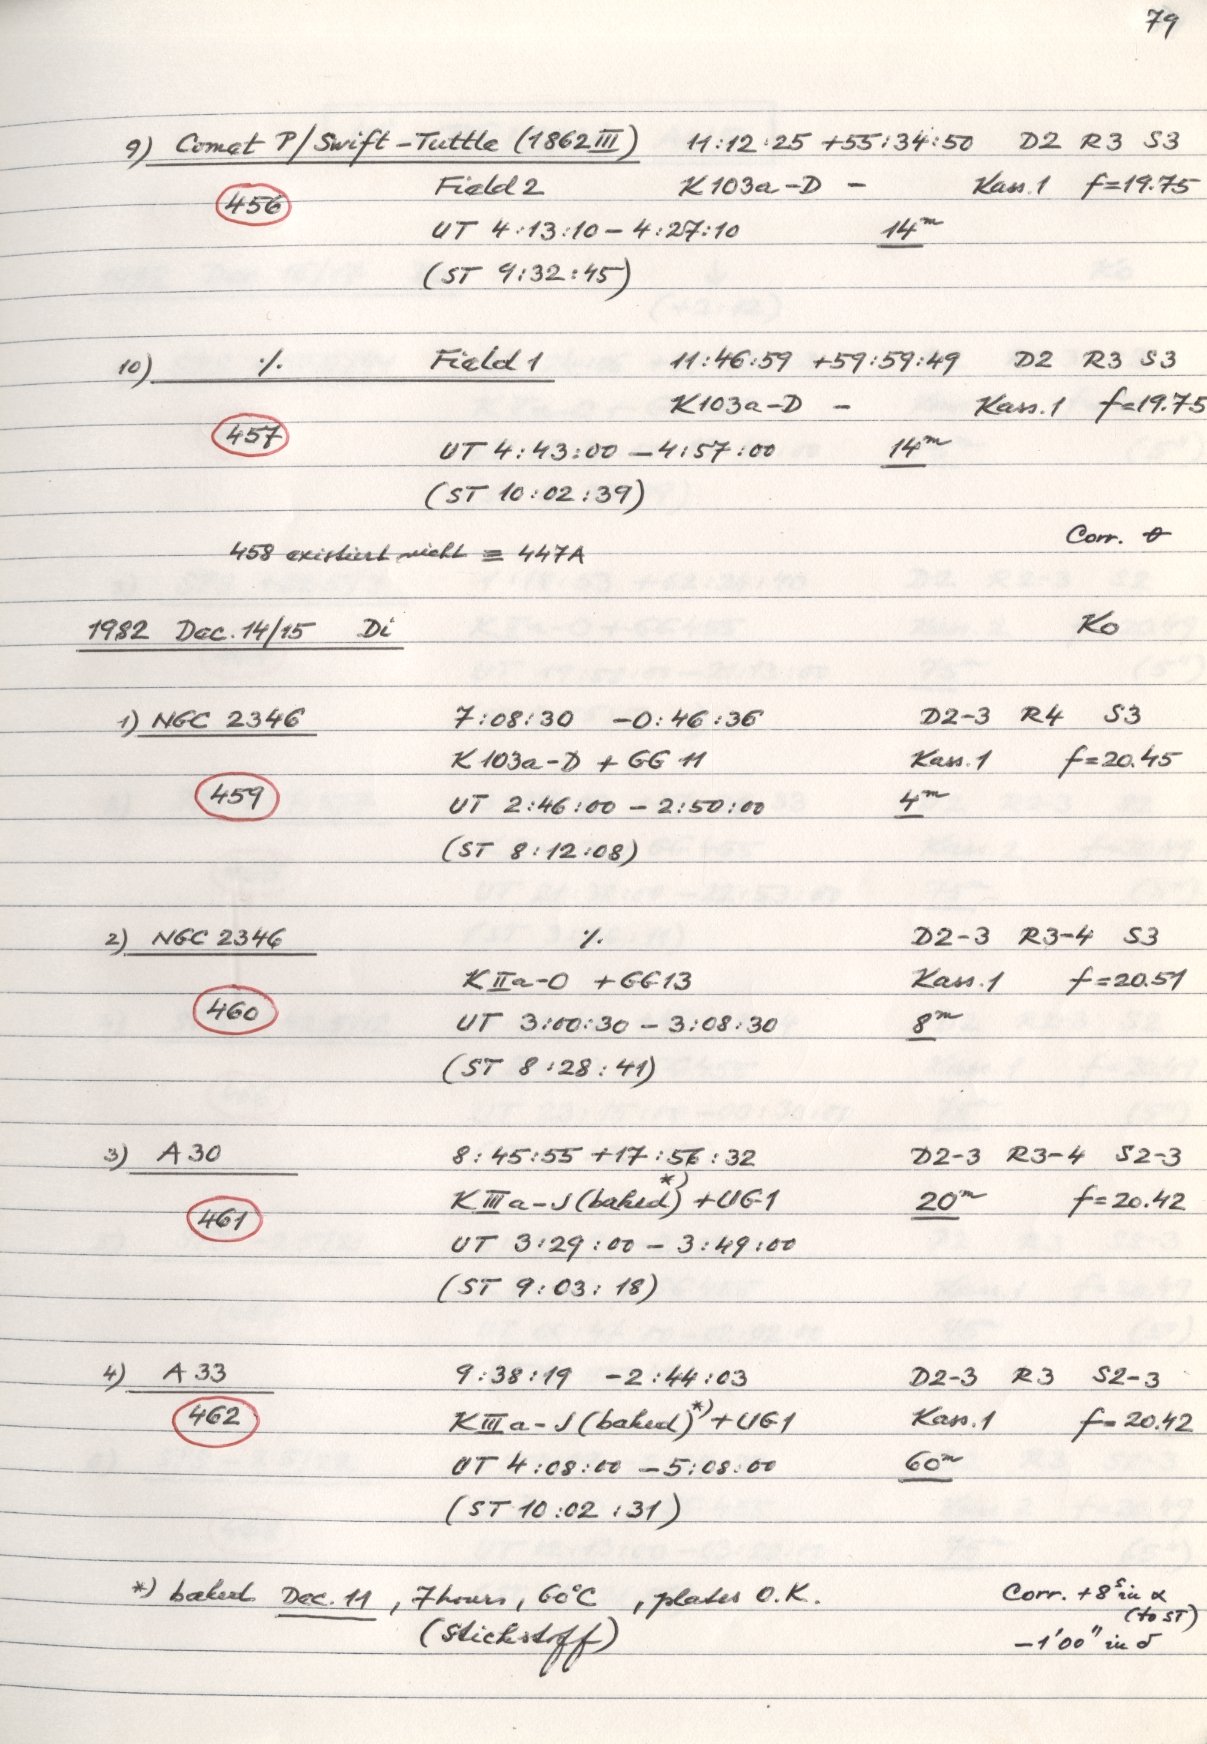 79
9) Comet P/Swift-Tuttle (1862III) 11:12:25 +55:34:50 D2 R3 S3
456 Field 2 K103a-D - Kass.1 f=19.75
UT 4:13:10 - 4:27:10 14m
(ST 9:32:45)
10) ·/. Field 1 11:46:59 +59:59:49 D2 R3 S3
K103a-D - Kass.1 f=19.75
457 UT 4:43:00 - 4:57:00 14m
(ST 10:02:39)
Corr. θ
458 existiert nicht ≡ 447A
1982 Dec. 14/15 Di Ko
1) NGC 2346 7:08:30 -0:46:36 D2-3 R4 S3
K103a-D + GG11 Kass.1 f=20.45
459 UT 2:46:00 - 2:50:00 4m
(ST 8:12:08)
2) NGC 2346 ·/. D2-3 R3-4 S3
KIIa-O + GG13 Kass.1 f=20.51
460 UT 3:00:30 - 3:08:30 8m
(ST 8:28:41)
3) A30 8:45:55 +17:56:32 D2-3 R3-4 S2-3
KIIIa-J (baked*)) + UG1 20m f=20.42
461 UT 3:29:00 - 3:49:00
(ST 9:03:18)
4) A33 9:38:19 -2:44:03 D2-3 R3 S2-3
462 KIIIa-J (baked)*) + UG1 Kass.1 f=20.42
UT 4:08:00 - 5:08:00 60m
(ST 10:02:31)
*) baked Dec. 11, 7hours, 60°C, plates O.K. Corr. +8s in α
(Stickstoff) (to ST)
-1'00" in δ